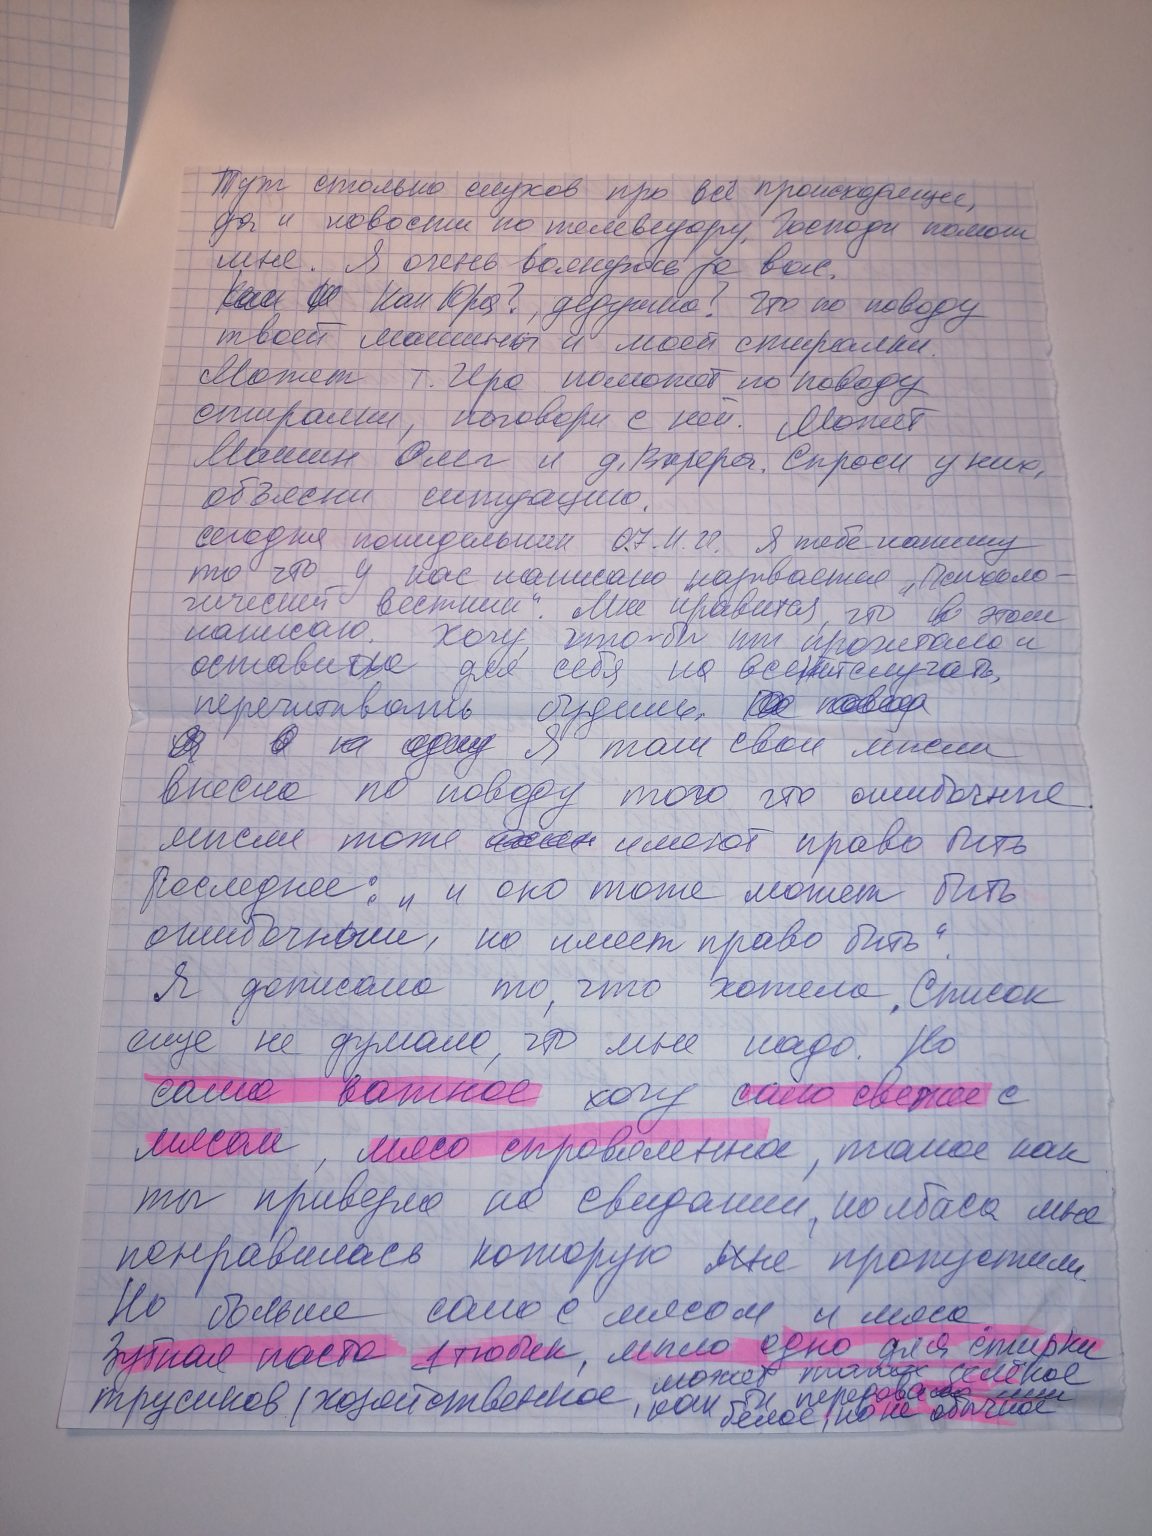 Тут столько слухов про всё происходящее,
да и новости по телевизору, Господи помоги
мне. Я очень волнуюсь за вас.
Как Юра?, дедушка? Что по поводу
твоей машины и моей стиралки.
Может т. Ира поможет по поводу
стиралки, поговори с ней. Может
Машин Олег и д. Валера. Спроси у них,
объясни ситуацию.
сегодня понидельник 07.11.22. Я тебе напишу
то что у нас написано называется „Психоло-
гический вестник“. Мне нравится, что в этом
написано. Хочу, что-бы ты прочитала и
оставила для себя на всякий случай,
перечитывать будешь.
Я там свои мысли
внесла по поводу того что ошибочные
мысли тоже имеют право быть
Последнее: „и оно тоже может быть
ошибочным, но имеет право быть“.
Я дописала то, что хотела. Список
еще не думала, что мне надо. Но
само важное хочу сало свежее с
мясом, мясо стровяленное, такое как
ты привезла на свидании, колбаса мне
понравилась которую не пропустили.
Но больше сало с мясом и мясо.
Зубная паста 1 тюбик, мыло одно для стирки
трусиков (хозяйственное, может такое зелёное
как бы передавала или
белое, но не обычное